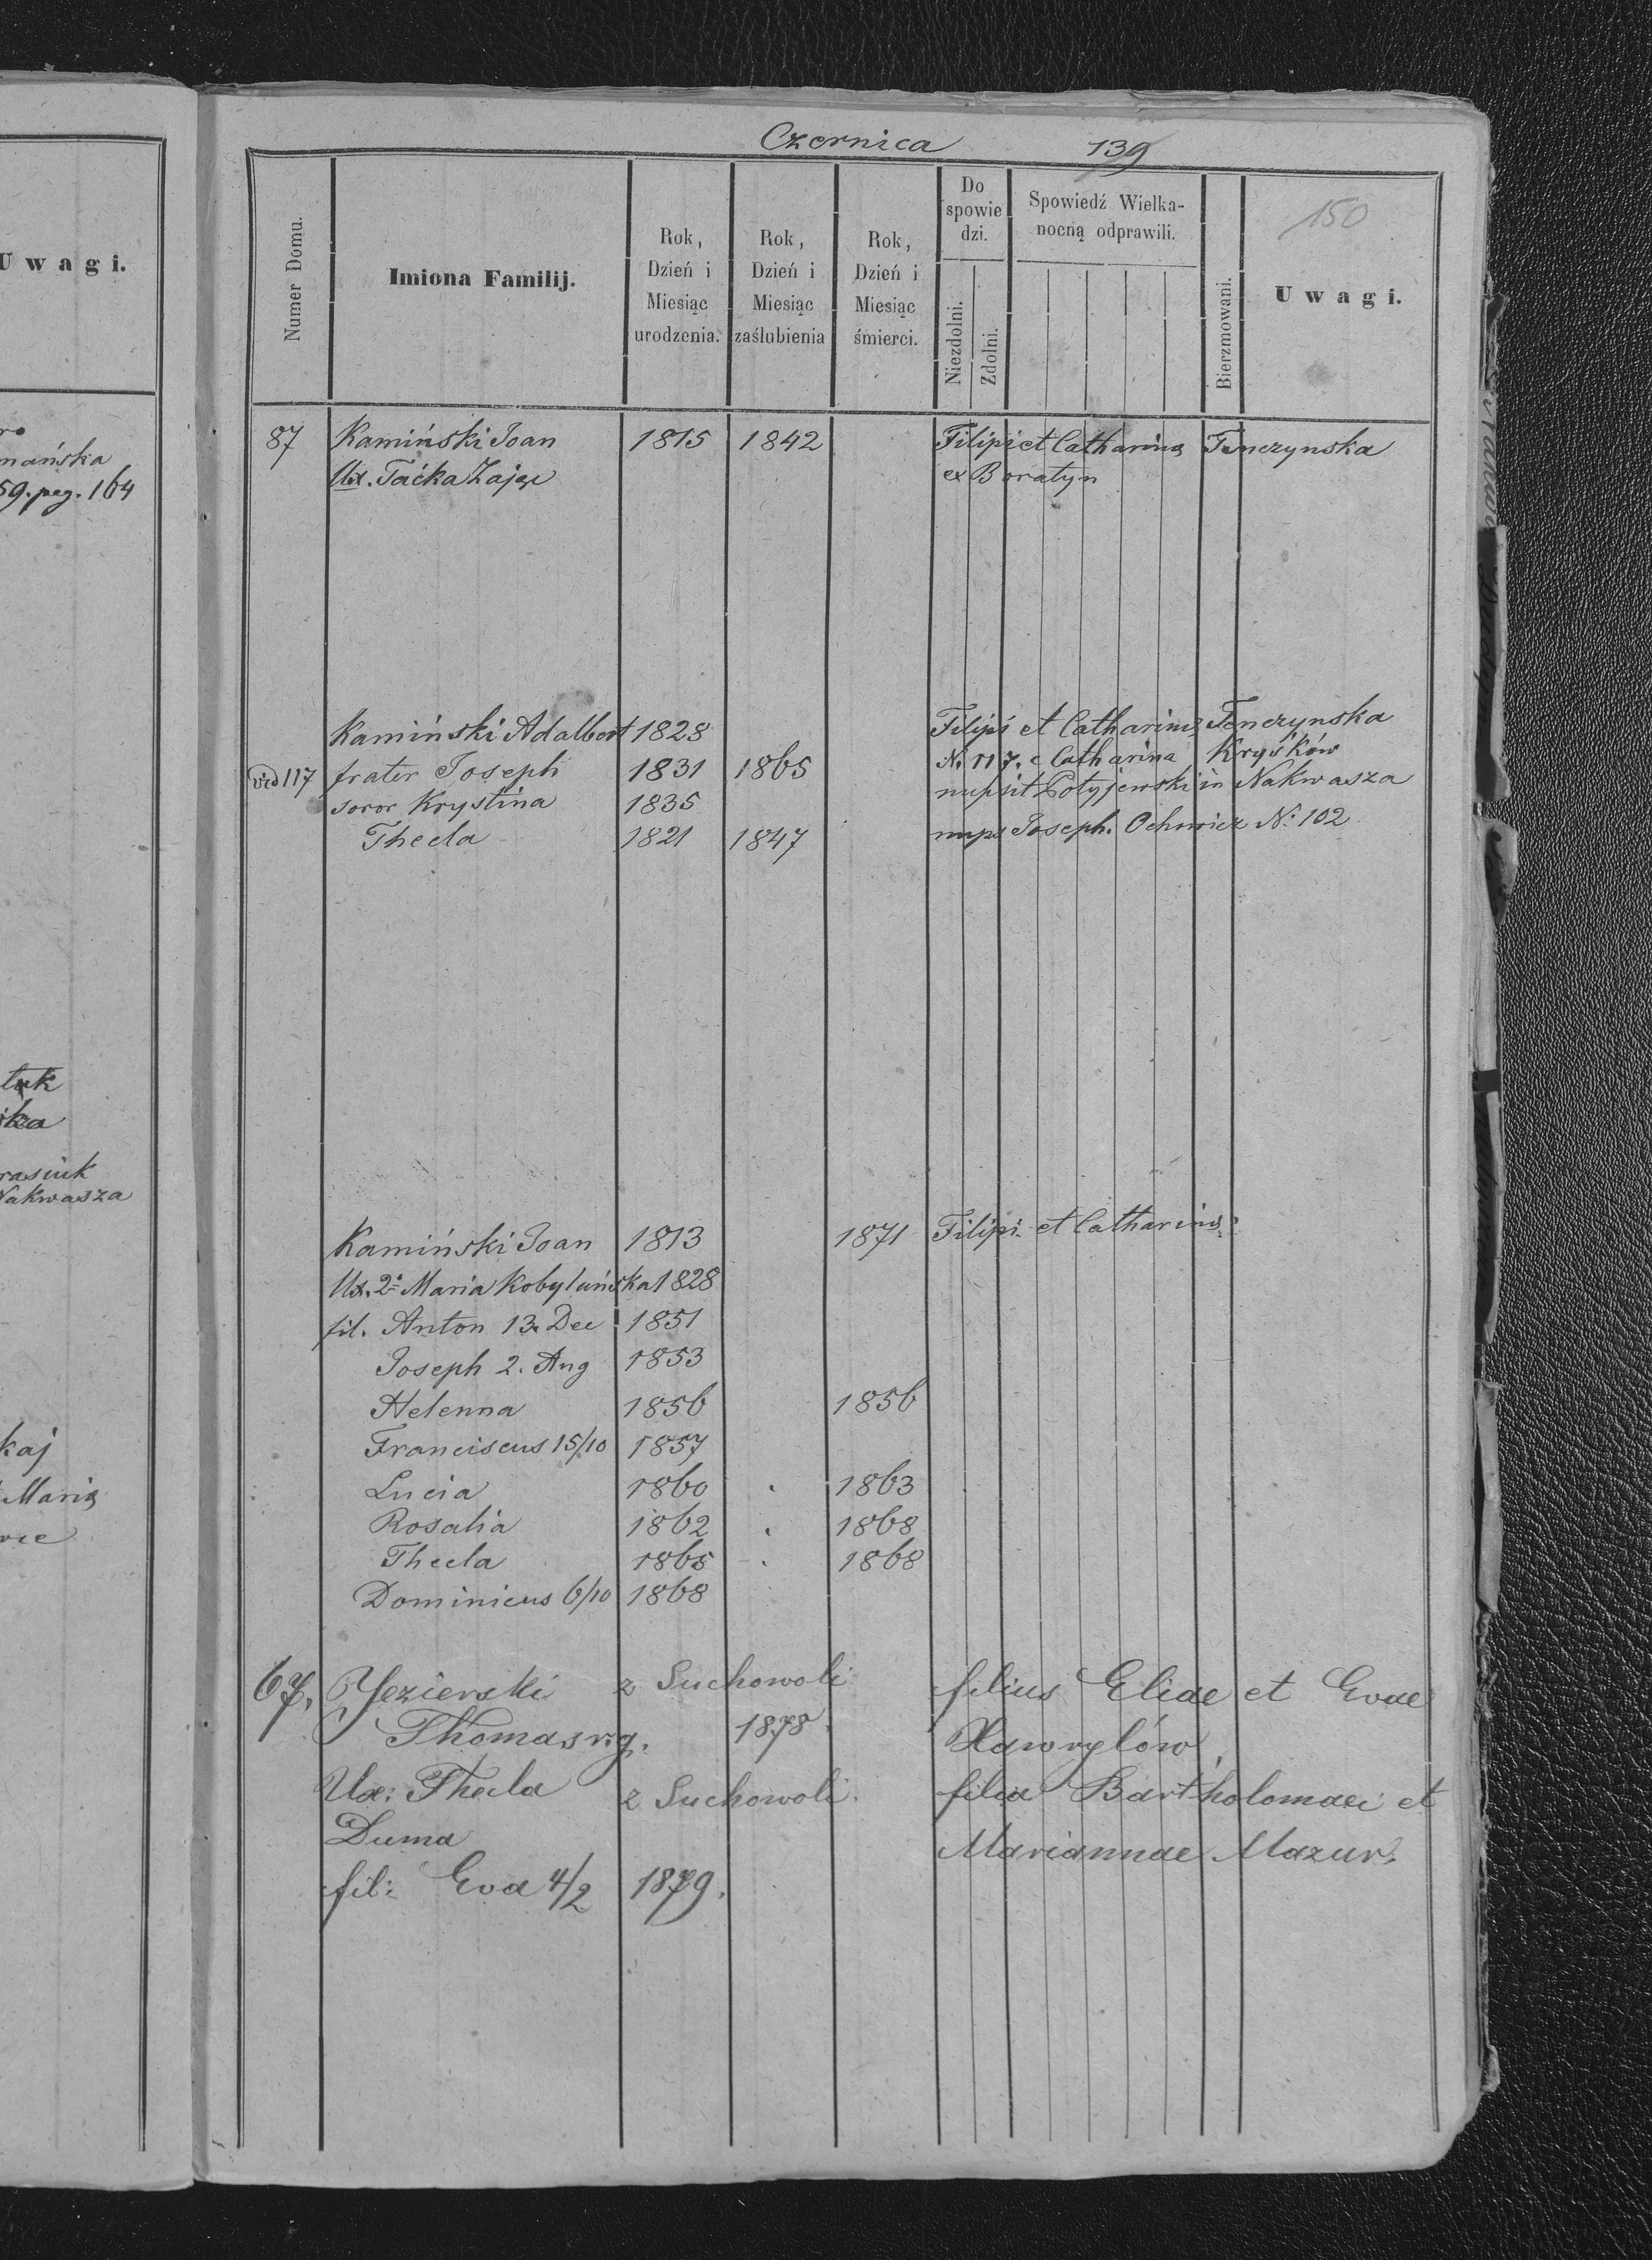 Uwagi.
mańska
59. peg. 164
tuk
ika
rasiuk
Nakwasza
kaj
Marię
Czernica 139
150
Numer Domu.
Imiona Familij.
Rok, Dzień i Miesiąc urodzenia.
Rok, Dzień i Miesiąc zaślubienia
Rok, Dzień i Miesiąc śmierci.
Do spowiedzi.
Niezdolni.
Zdolni.
Spowiedź Wielkanocną odprawili.
Bierzmowani.
Uwagi.
87 Kamiński Joan 1815 1842 Filipi et Catharinę Tenczynska
Ux. Taćka Zając ex Boratyn
Kamiński Adalbert 1828 Filipi et Catharinę Tenczynska
vid 117 frater Joseph 1831 1865 N. 117. c Catharina Kryśków
soror Krystina 1835 nupsit Potyjewski in Nakwasza
Thecla 1821 1847 nups Joseph. Ochwicz No. 102
Kamiński Joan 1813 1871 Filipi et Catharinę
Ux. 2a Maria Kobylańska 1828
fil. Anton 13. Dec 1851
Joseph 2. Aug 1853
Helenna 1856 1856
Franciscus 15/10 1857
Lucia 1860 1863
Rosalia 1862 1868
Thecla 1865 1868
Dominicus 6/10 1868
67. Jezierski z Suchowoli filius Eliae et Evae
Thomas rg. 1878 Hawrylów
Ux: Thecla z Suchowoli. filia Bartholomaei et
Duma Mariannae Mazur.
fil: Eva 4/2 1879.